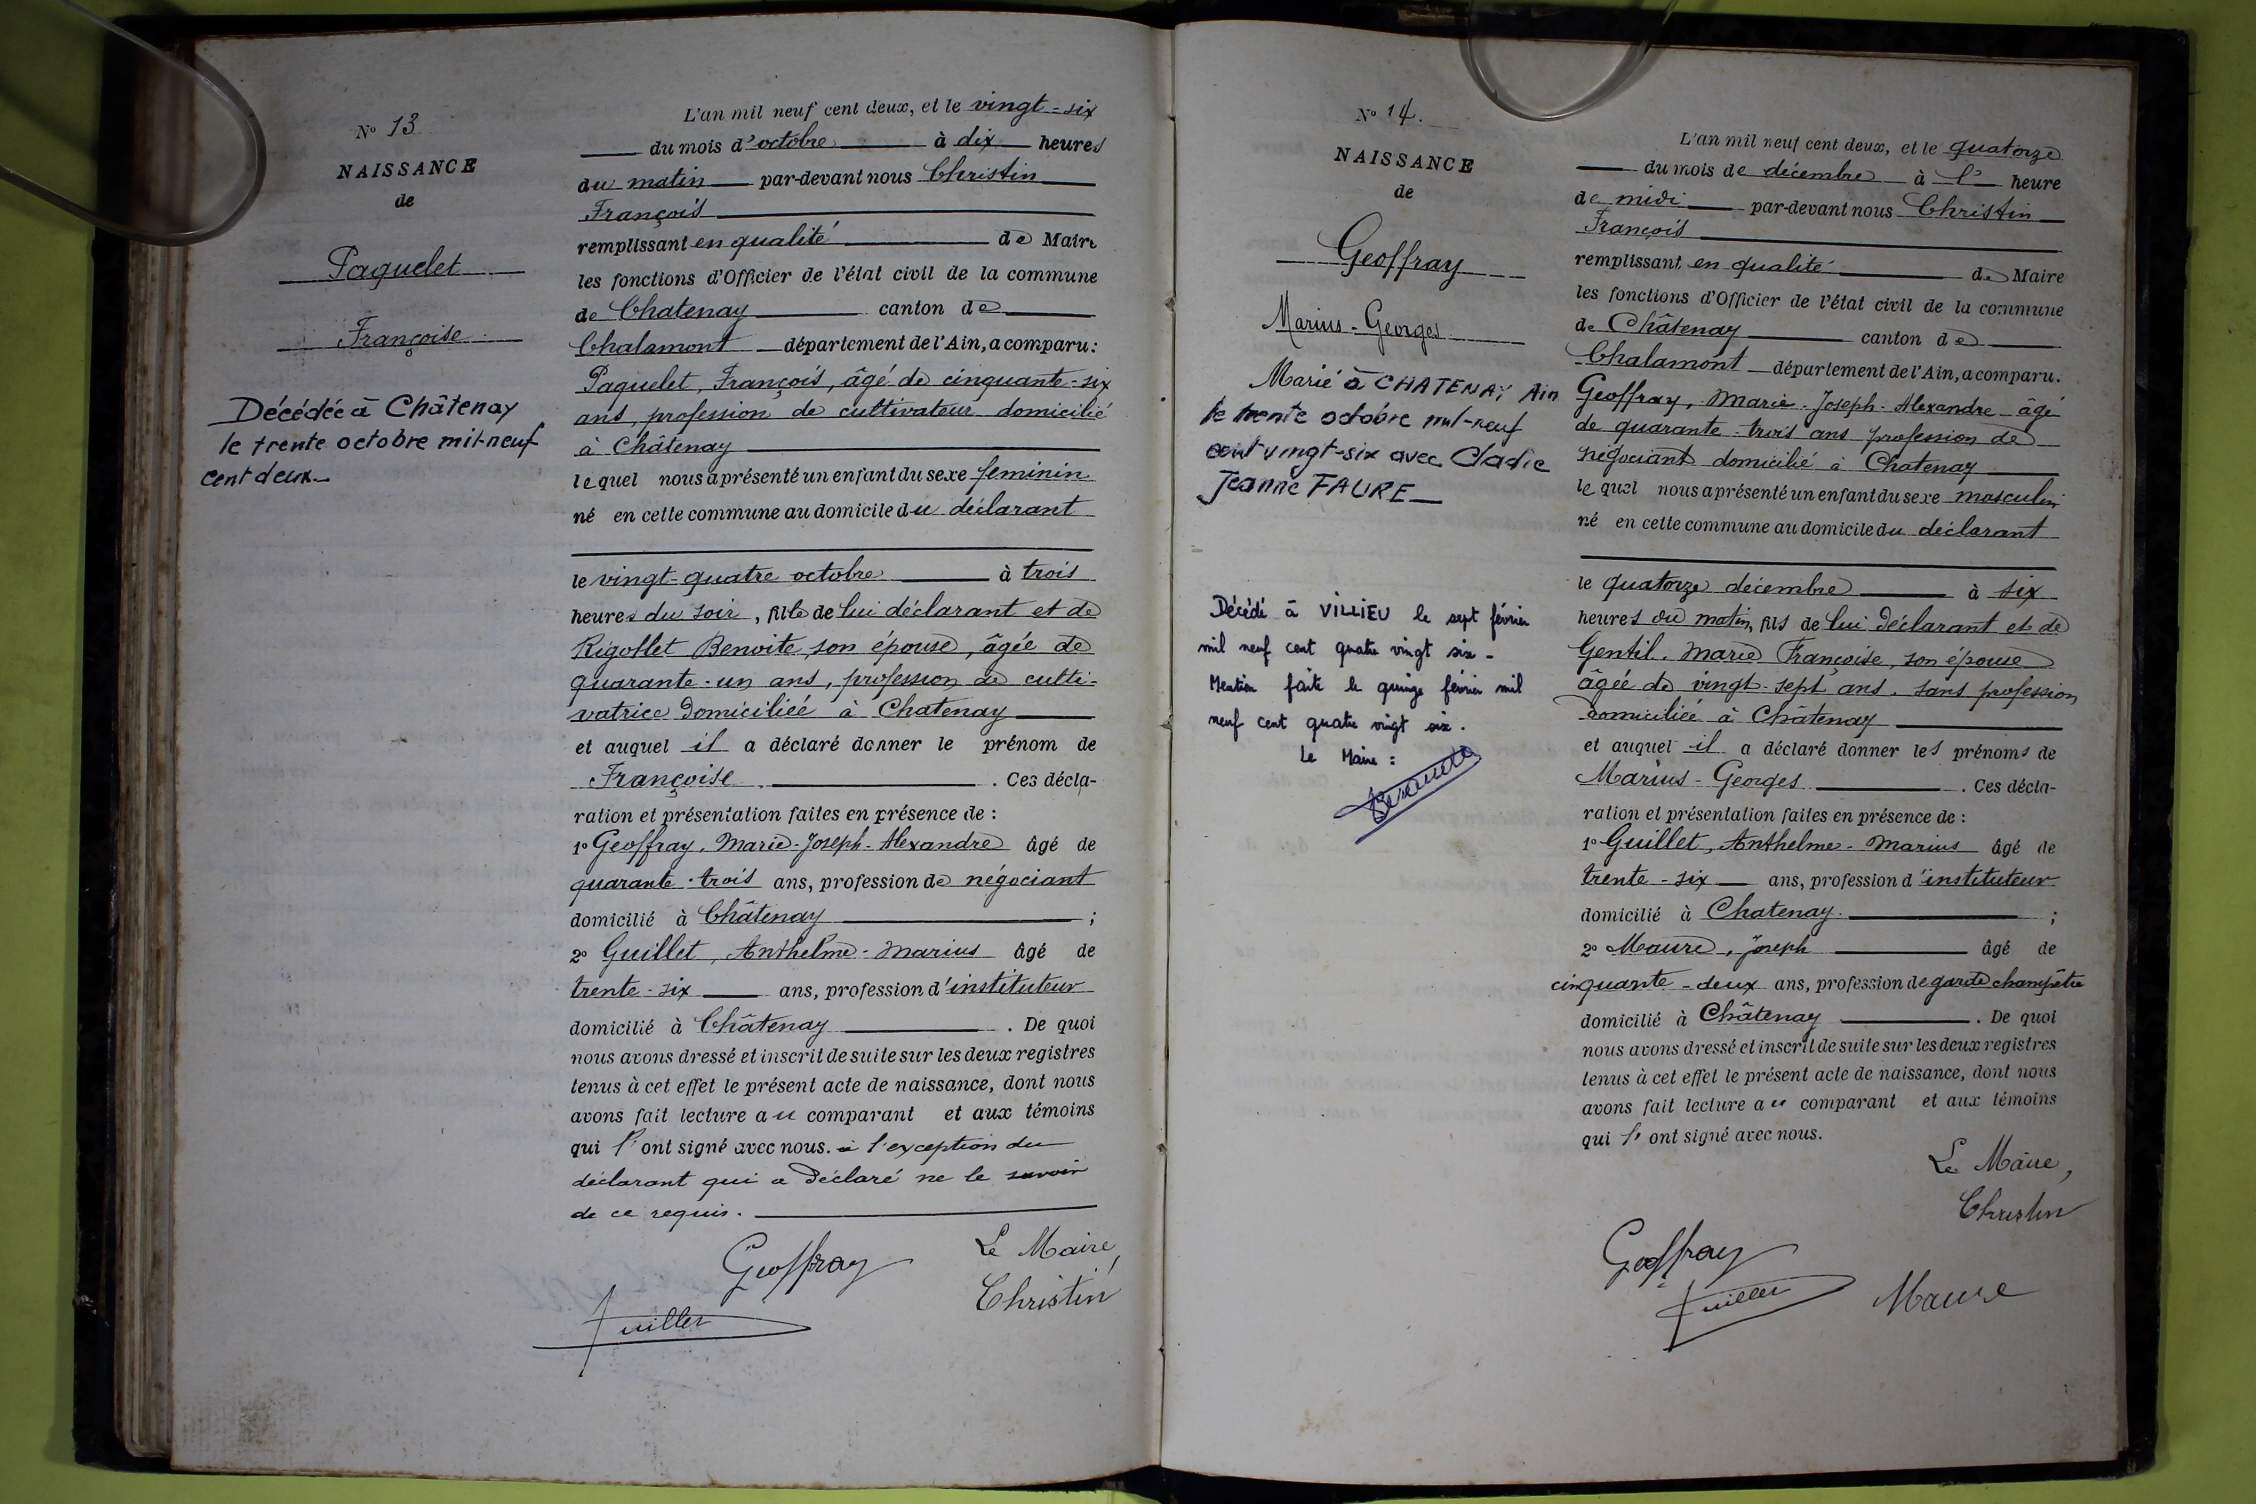 N° 13
NAISSANCE
de
Paquelet
Françoise
Décédée à Châtenay
le trente octobre mil-neuf
cent deux.
L'an mil neuf cent deux, et le vingt-six
du mois d'octobre à dix heures
du matin par-devant nous Christin
François
remplissant en qualité de Maire
les fonctions d'Officier de l'état civil de la commune
de Chatenay canton de
Chalamont département de l'Ain, a comparu:
Paquelet, François, âgé de cinquante-six
ans, profession de cultivateur domicilié
à Châtenay
lequel nous a présenté un enfant du sexe feminin
né en cette commune au domicile du déclarant
le vingt-quatre octobre à trois
heures du soir, fille de lui déclarant et de
Rigollet Benoite, son épouse, âgée de
quarante-un ans, profession de culti-
vatrice domiciliée à Chatenay
et auquel il a déclaré donner le prénom de
Françoise. Ces décla-
ration et présentation faites en présence de :
1° Geoffray, Marie-Joseph-Alexandre âgé de
quarante-trois ans, profession de négociant
domicilié à Châtenay ;
2° Guillet, Anthelme-Marius âgé de
trente-six ans, profession d'instituteur
domicilié à Châtenay. De quoi
nous avons dressé et inscrit de suite sur les deux registres
tenus à cet effet le présent acte de naissance, dont nous
avons fait lecture au comparant et aux témoins
qui l'ont signé avec nous. à l'exception du
déclarant qui a déclaré ne le savoir
de ce requis.
Geoffray
Le Maire,
Christin
Guillet
N° 14.
NAISSANCE
de
Geoffray
Marius-Georges
Marié à CHATENAY Ain
le trente octobre mil-neuf
cent vingt-six avec Cladie
Jeanne FAURE
Décédé à VILLIEU le sept février
mil neuf cent quatre vingt six -
Mention faite le quinze février mil
neuf cent quatre vingt six.
Le Maire :
L'an mil neuf cent deux, et le quatorze
du mois de décembre à l' heure
de midi par-devant nous Christin
François
remplissant en qualité de Maire
les fonctions d'Officier de l'état civil de la commune
de Châtenay canton de
Chalamont département de l'Ain, a comparu.
Geoffray, Marie-Joseph-Alexandre âgé
de quarante-trois ans profession de
négociant domicilié à Chatenay
lequel nous a présenté un enfant du sexe masculin
né en cette commune au domicile du déclarant
le quatorze décembre à six
heures du matin, fils de lui déclarant et de
Gentil. Marie Françoise, son épouse
âgée de vingt-sept ans. sans profession
domiciliée à Châtenay
et auquel il a déclaré donner les prénoms de
Marius-Georges. Ces décla-
ration et présentation faites en présence de :
1° Guillet, Anthelme-Marius âgé de
trente-six ans, profession d'instituteur
domicilié à Chatenay ;
2° Maure, Joseph âgé de
cinquante-deux ans, profession de garde champêtre
domicilié à Châtenay. De quoi
nous avons dressé et inscrit de suite sur les deux registres
tenus à cet effet le présent acte de naissance, dont nous
avons fait lecture au comparant et aux témoins
qui l'ont signé avec nous.
Le Maire,
Christin
Geoffray
Guillet
Maure